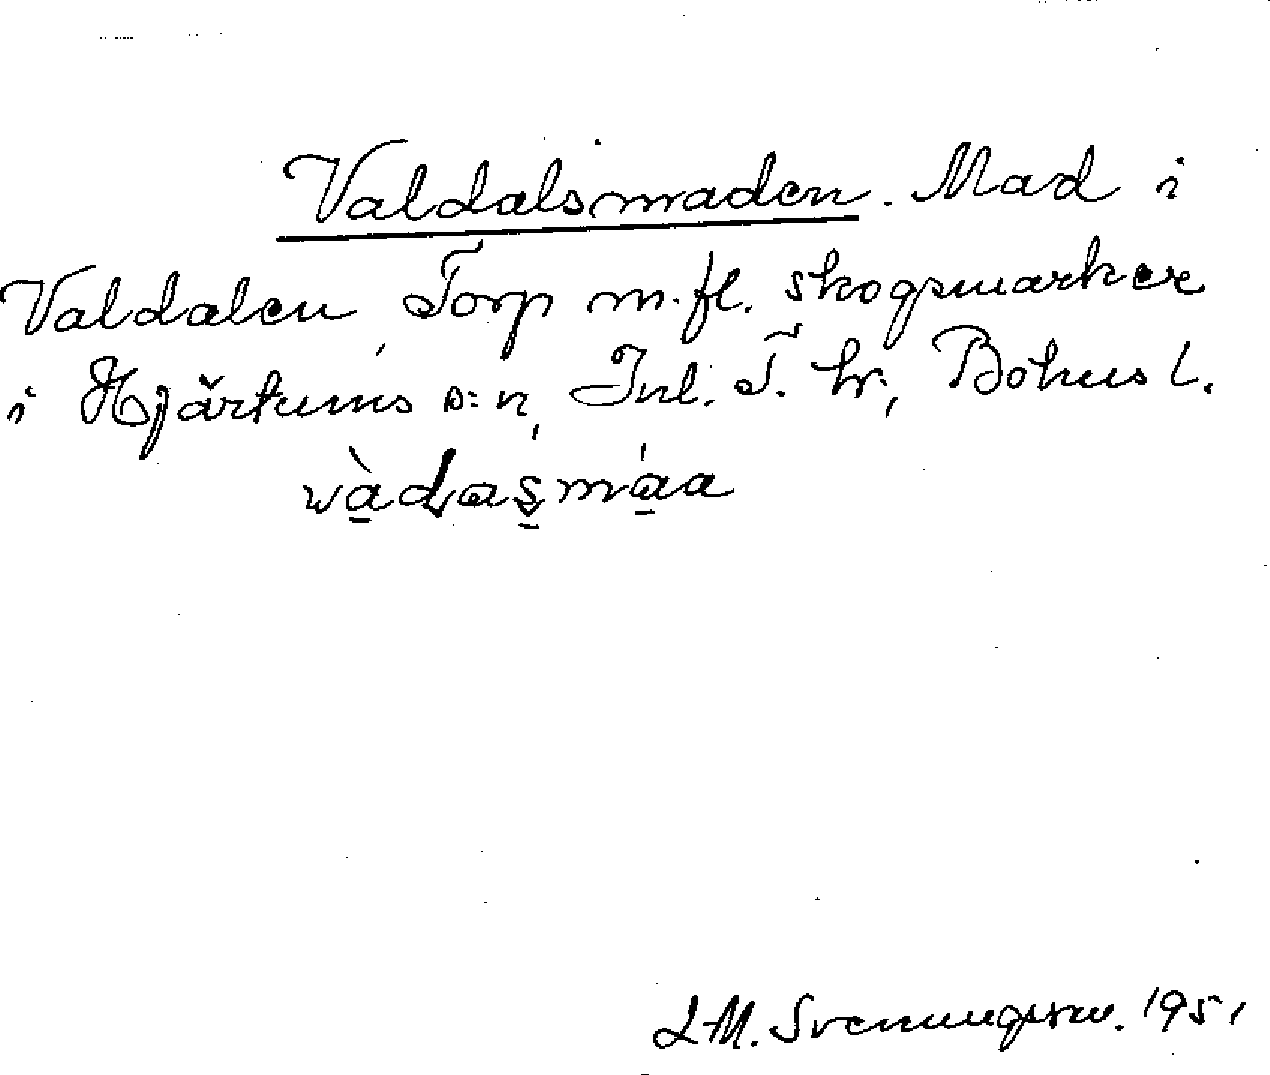 Valdalsmaden. Mad i
Valdalen, Torp m.fl. skogsmarker
i Hjärtums s:n, Inl. T. hr, Bohusl.
wàdasmáa
L.M. Svenungsson. 1951